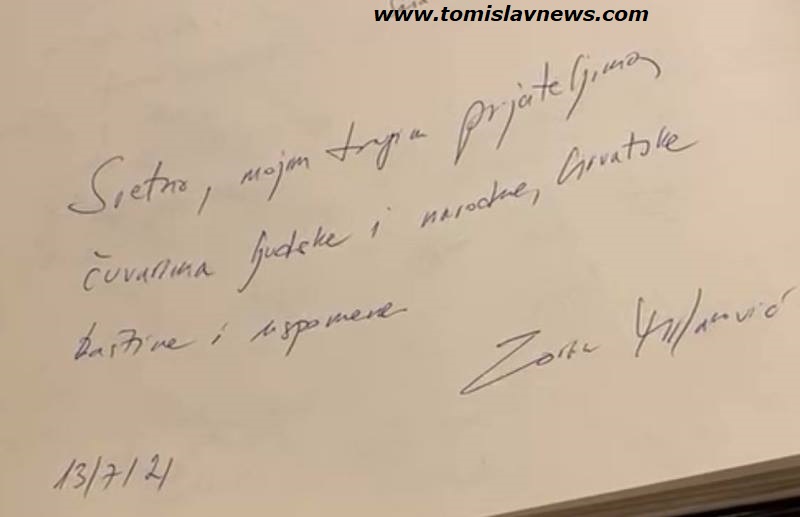 www.tomislavnews.com
Sretno, mojim dragim prijateljima,
čuvarima ljudske i narodne, hrvatske
baštine i uspomene
Zoran Milanović
13/7/21